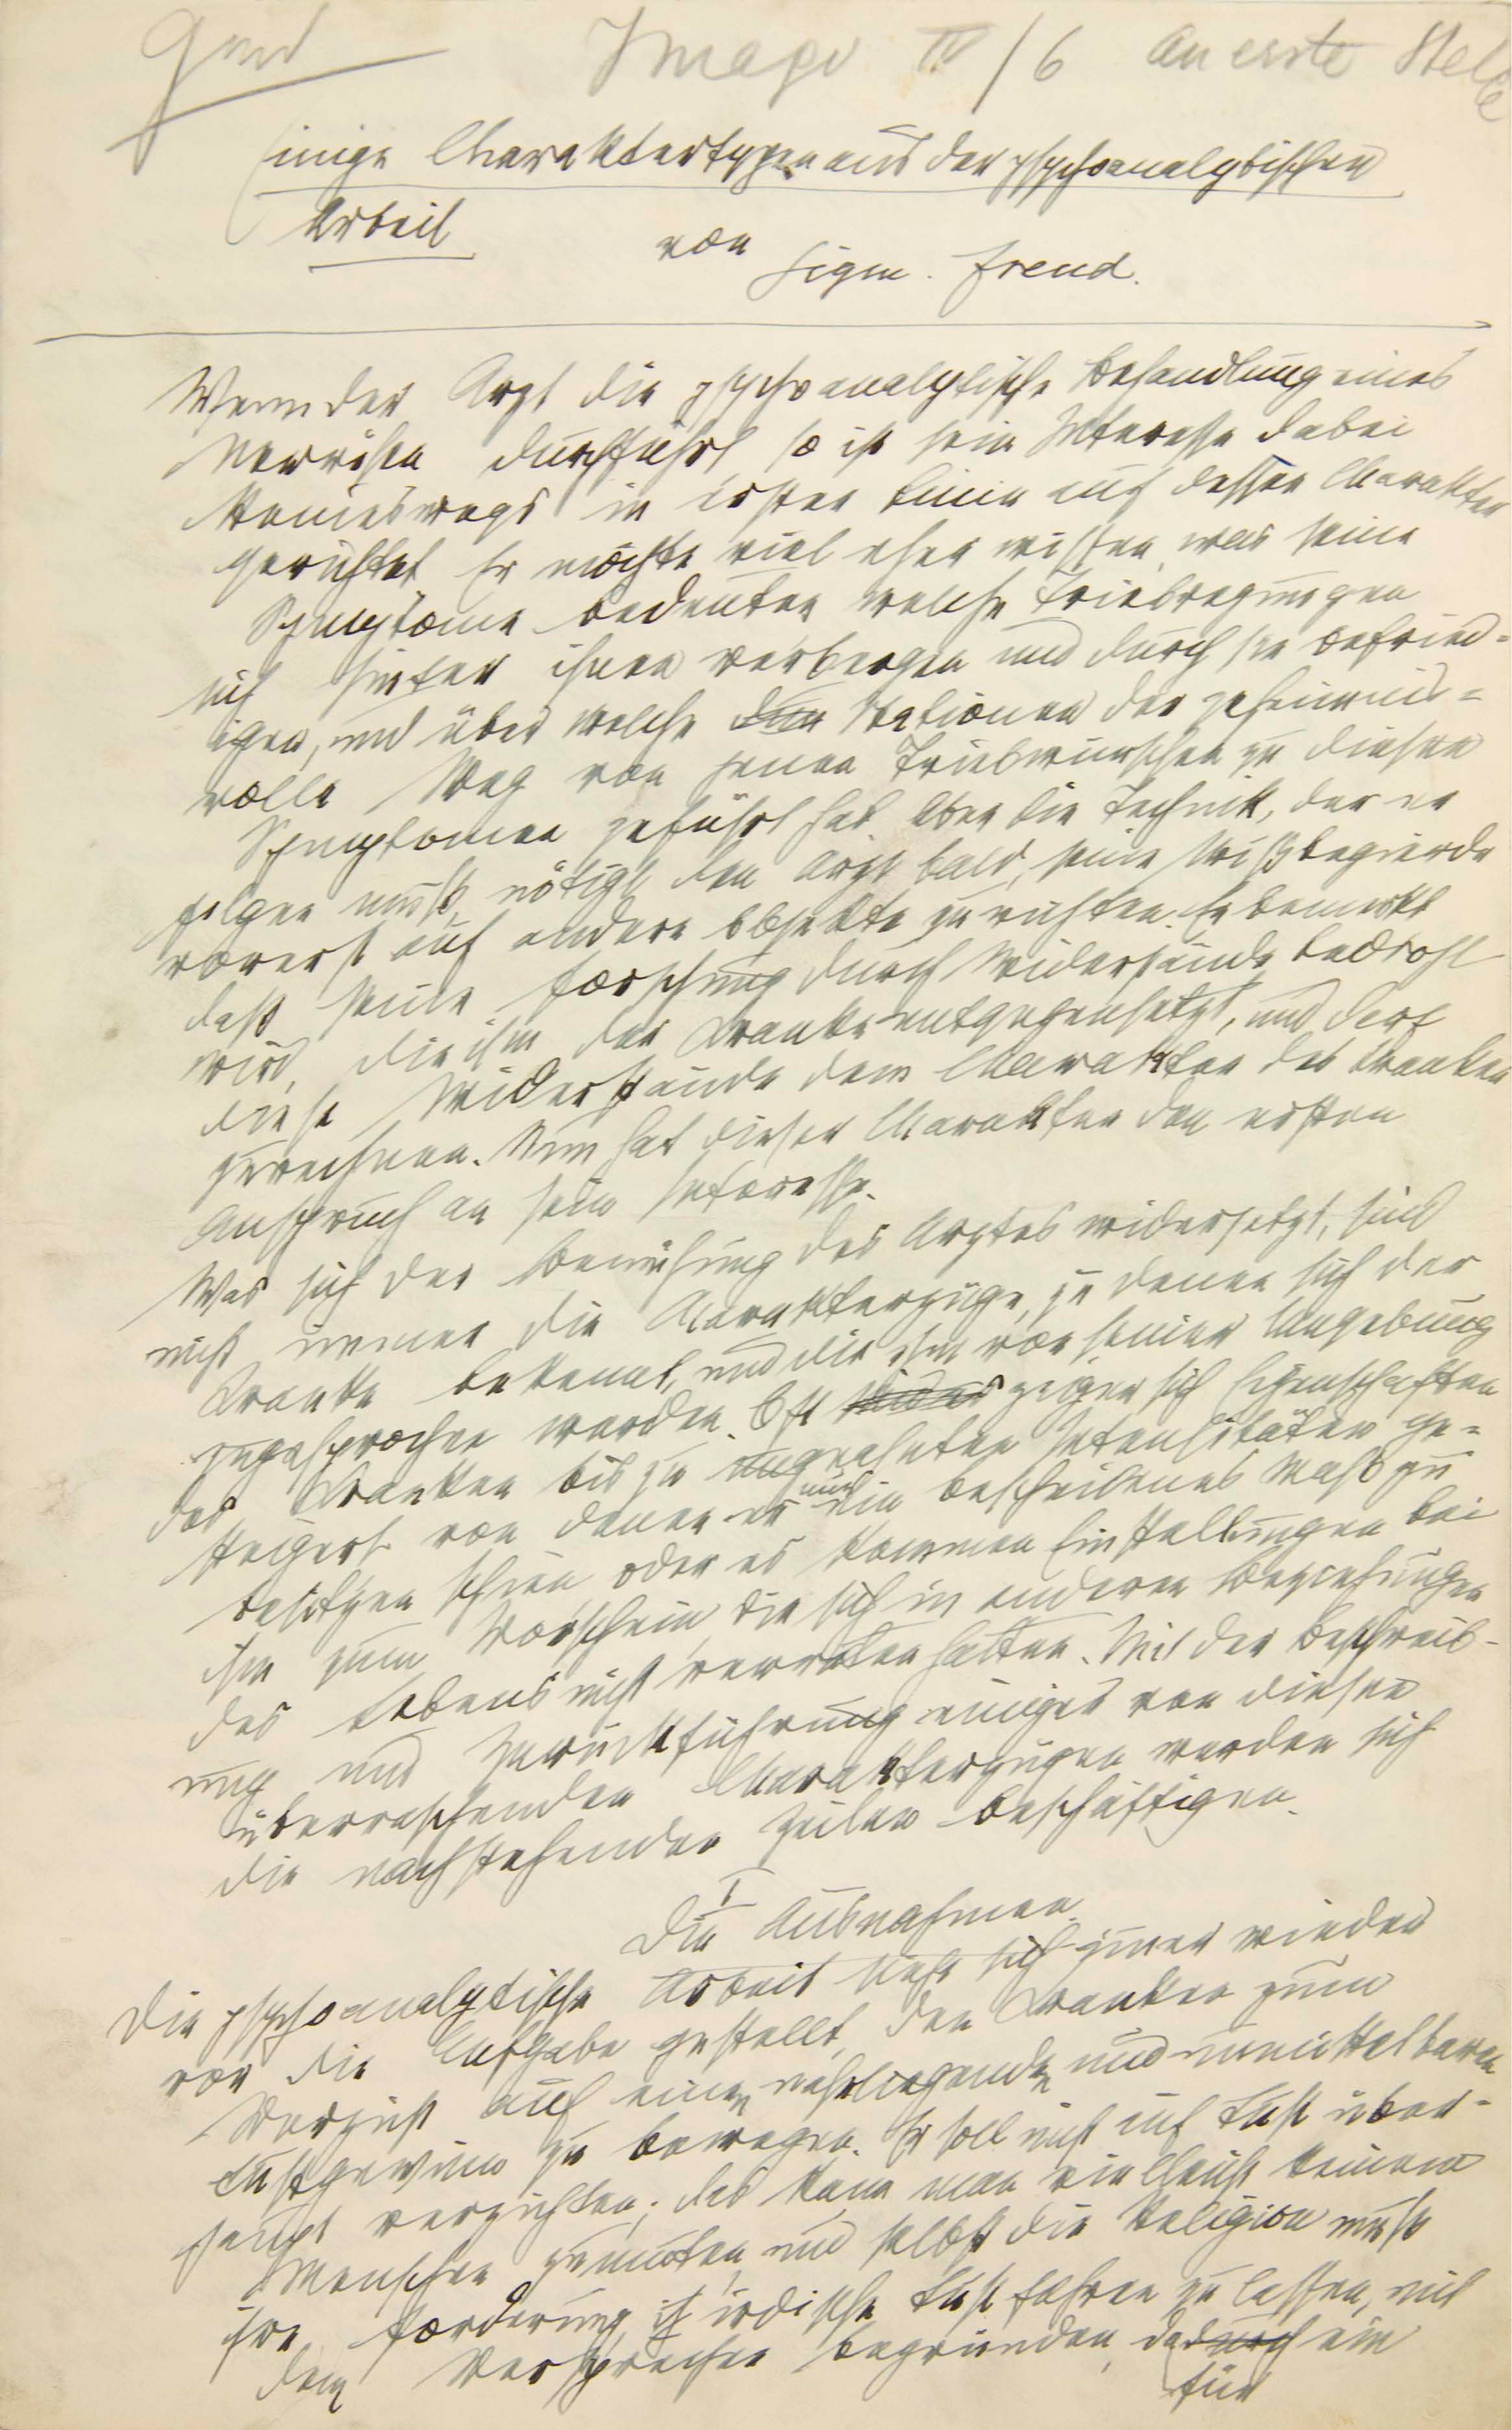 Imago IV/6 An erste Stelle
Einige Charaktertypen aus der psychoanalytischen
Arbeit
von Sigm. Freud.
Wenn der Arzt die psychoanalytische Behandlung eines
Nervösen durchführt, so ist sein Interesse dabei
keineswegs in erster Linie auf dessen Charakter
gerichtet. Er möchte viel eher wissen, was seine
Symptome bedeuten, welche Triebregungen
sich hinter ihnen verbergen und durch sie befried-
igen, und über welche Stationen der geheimnis-
volle Weg von jenen Triebwünschen zu diesen
Symptomen geführt hat. Aber die Technik, der er
folgen muß, nötigt den Arzt bald, seine Wißbegierde
vorerst auf andere Objekte zu richten. Er bemerkt
daß seine Forschung durch Widerstände bedroht
wird, die ihm der Kranke entgegensetzt, und darf
diese Widerstände dem Charakter des Kranken
zurechnen. Nun hat dieser Charakter den ersten
Anspruch an sein Interesse.
Was sich der Bemühung des Arztes widersetzt, sind
nicht immer die Charakterzüge, zu denen sich der
Kranke bekennt, und die ihm von seiner Umgebung
zugesprochen werden. Oft zeigen sich Eigenschaften
des Kranken bis zu ungeahnten Intensitäten ge-
steigert von denen er nur ein bescheidenes Maß zu
besitzen schien oder es kommen Einstellungen bei
ihm zum Vorschein, die sich in anderen Beziehungen
des Lebens nicht verraten hatten. Mit der Beschreib-
ung und Zurückführung einiger von diesen
überraschenden Charakterzügen werden sich
die nachstehenden Zeilen beschäftigen.
I
Die Ausnahmen.
Die psychoanalytische Arbeit sieht sich immer wieder
vor die Aufgabe gestellt, den Kranken zum
Verzicht auf einen naheliegenden und unmittelbaren
Lustgewinn zu bewegen. Er soll nicht auf Lust über-
haupt verzichten; das kann man vielleicht keinem
Menschen zumuten, und selbst die Religion muß
ihre Forderung, irdische Lust fahren zu lassen, mit
dem Versprechen begründen, ein
für